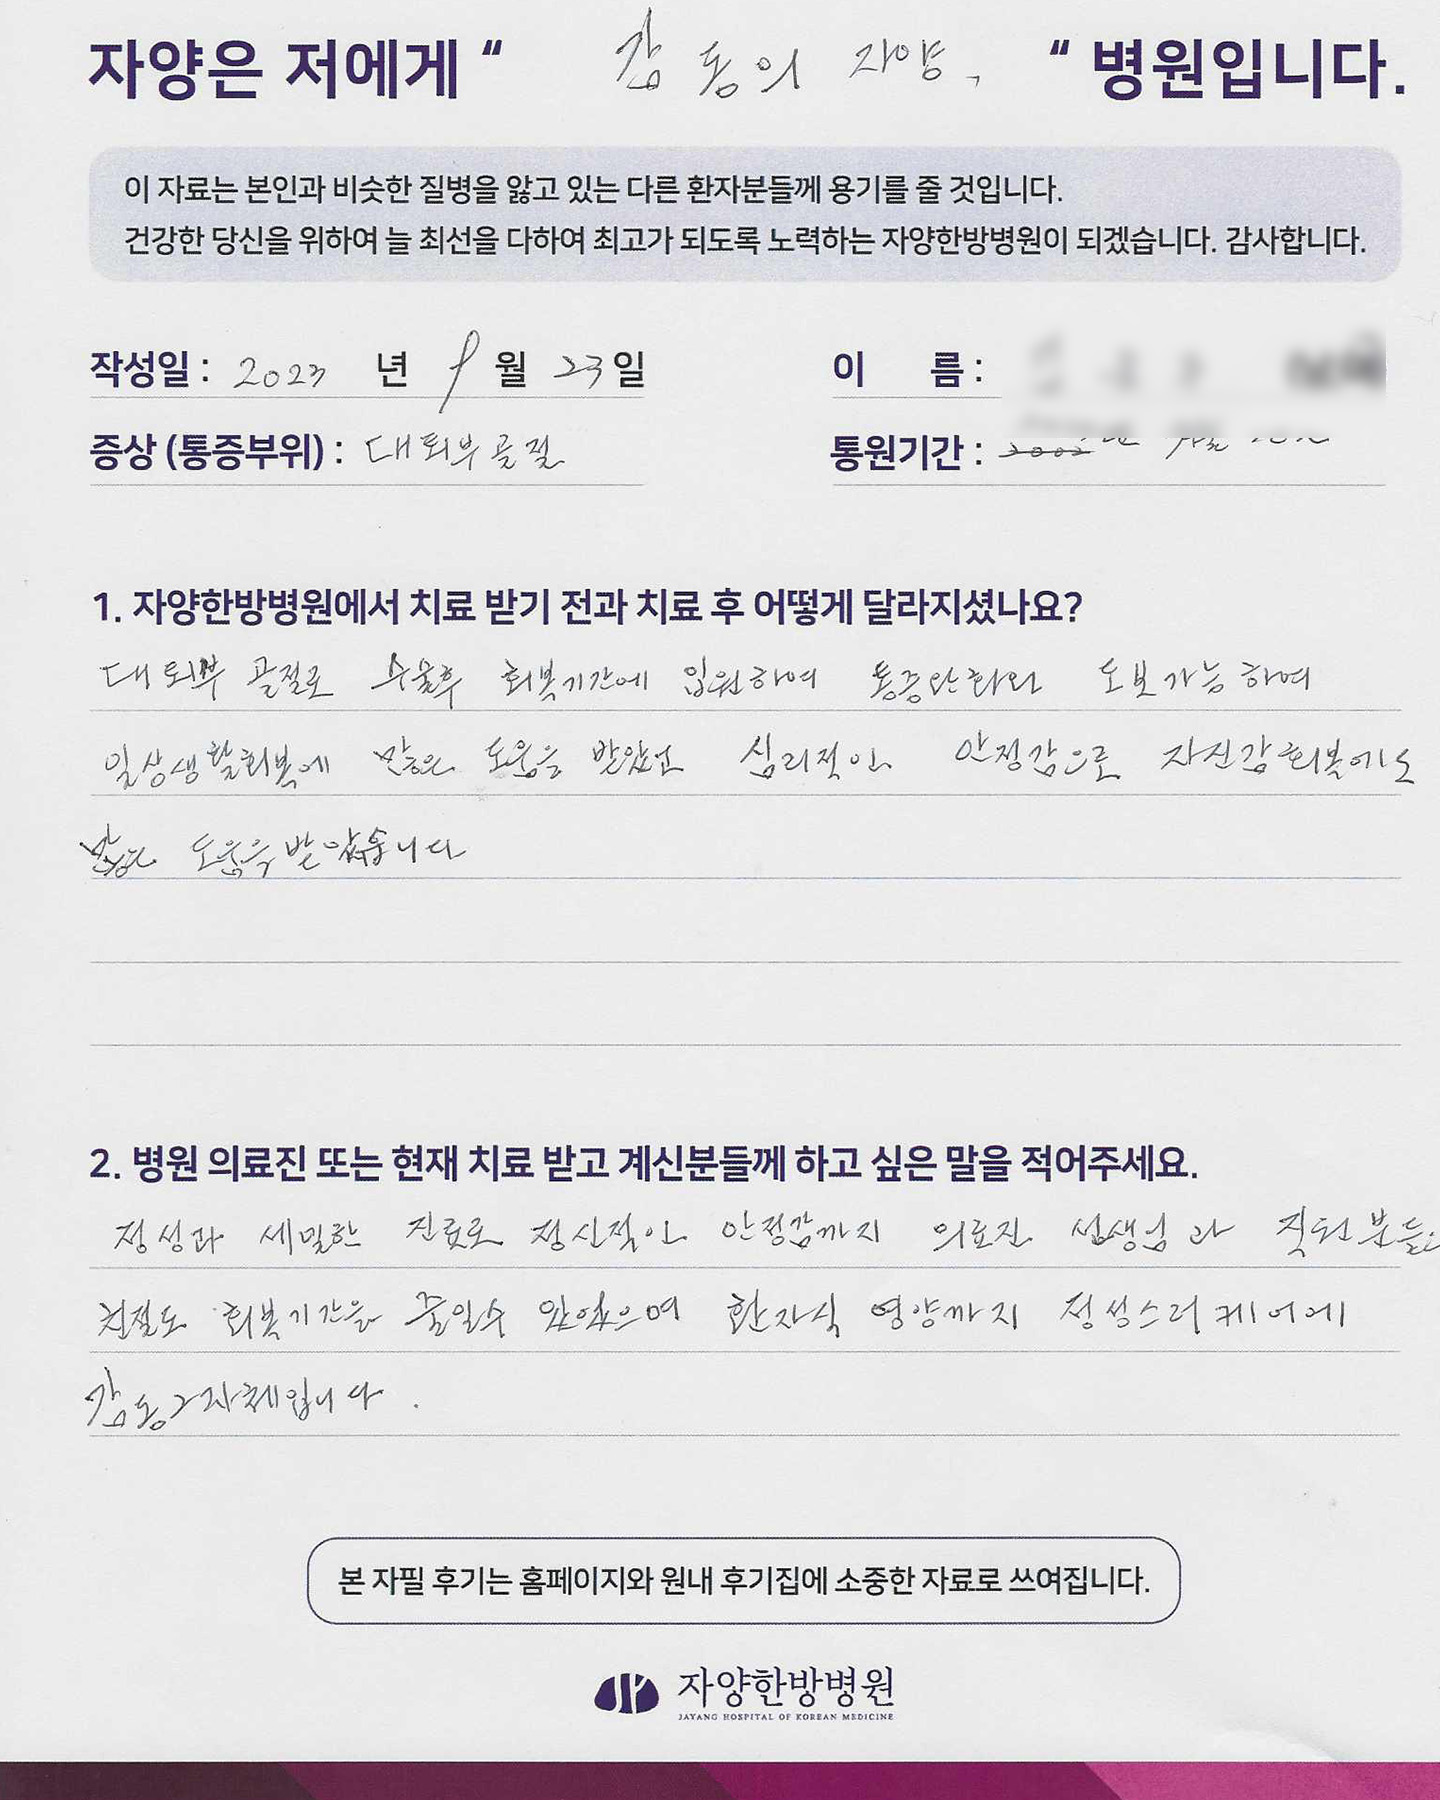 자양은 저에게 “ 감동의 자양, “ 병원입니다.
이 자료는 본인과 비슷한 질병을 앓고 있는 다른 환자분들께 용기를 줄 것입니다.
건강한 당신을 위하여 늘 최선을 다하여 최고가 되도록 노력하는 자양한방병원이 되겠습니다. 감사합니다.
작성일 : 2023 년 9 월 23 일 이 름 :
증상 (통증부위) : 대퇴부골절 통원기간 :
1. 자양한방병원에서 치료 받기 전과 치료 후 어떻게 달라지셨나요?
대퇴부 골절로 수술후 회복기간에 입원하여 통증완화와 도보가능하여
일상생활회복에 많은 도움을 받았고 심리적인 안정감으로 자신감회복에도
많은 도움을받았습니다
2. 병원 의료진 또는 현재 치료 받고 계신분들께 하고 싶은 말을 적어주세요.
정성과 세밀한 진료로 정신적인 안정감까지 의료진 선생님과 직원분들
친절도 회복기간을 줄일수 있었으며 환자식 영양까지 정성스러 케어에
감동그자체입니다.
본 자필 후기는 홈페이지와 원내 후기집에 소중한 자료로 쓰여집니다.
자양한방병원
JAYANG HOSPITAL OF KOREAN MEDICINE